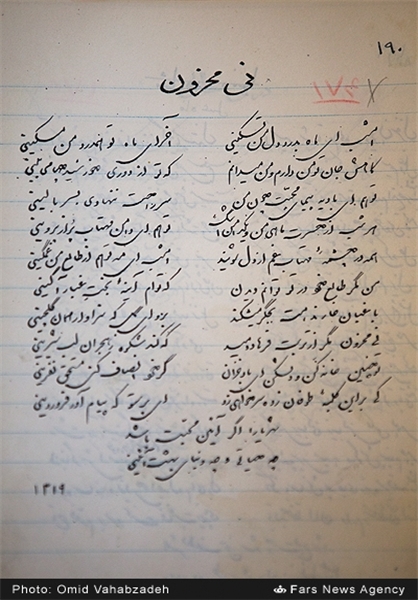 ۱۹۰
۳۷۱
نی محزون
امشب ای ماه به درد دل من تسکینی آخر ای ماه تو همدرد من مسکینی
کاهش جان تو من دارم و من میدانم که تو از دوری خورشید چها می بینی
تو هم ای بادیه پیمای محبت چون من سر راحت ننهادی به سر بالینی
هر شب از حسرت ماهی من و یک دامن اشک تو هم ای دامن مهتاب پر از پروینی
همه در چشمهٔ مهتاب غم از دل شویند امشب ای مه تو هم از طالع من غمگینی
من مگر طالع خود در تو توانم دیدن که توام آینهٔ بخت غبار آگینی
باغبان خار ندامت به جگر میشکند برو ای گل که سزاوار همان گلچینی
نی محزون مگر از تربت فرهاد دمید که کند شکوه ز هجران لب شیرینی
تو چنین خانه کن و دلشکن ای باد خزان گر خود انصاف کنی مستحق نفرینی
کی بر این کلبهٔ طوفان زده سر خواهی زد ای پرستو که پیام آور فروردینی
شهریارا اگر آئین محبت باشد
چه حیاتی و چه دنیای بهشت آئینی
۱۳۱۹
Photo: Omid Vahabzadeh Fars News Agency